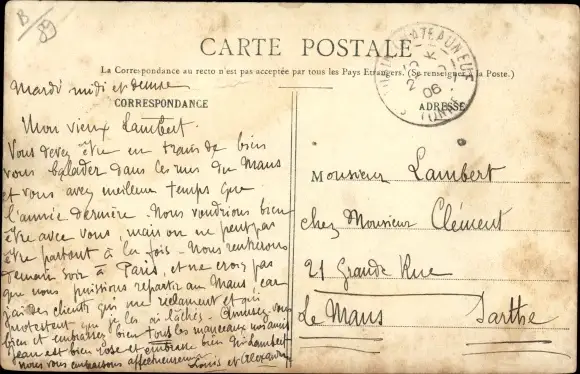 B
89
CARTE POSTALE
La Correspondance au recto n'est pas acceptée par tous les Pays Etrangers. (Se renseigner à la Poste.)
CORRESPONDANCE
ADRESSE
CHATEAUNEUF
06
Mardi midi et demie
Mon vieux Lambert.
Vous devez être en train de bien
vous balader dans les rues du Mans
et vous avez meilleur temps que
l'année dernière. Nous voudrions bien
être avec vous, mais on ne peut pas
être partout à la fois. Nous rentrerons
demain soir à Paris, et ne crois pas
que nous puissions repartir au Mans, car
j'ai des clients qui me réclament et qui
protestent que je les ai lâchés. Amusez-vous
bien et embrassez bien tous les manceaux nos amis
Jean est bien rose et embrasse bien Mr Lambert
nous vous embrassons affectueusement
Louis et Alexandre
Monsieur Lambert
chez Monsieur Clément
21 Grande Rue
Le Mans Sarthe